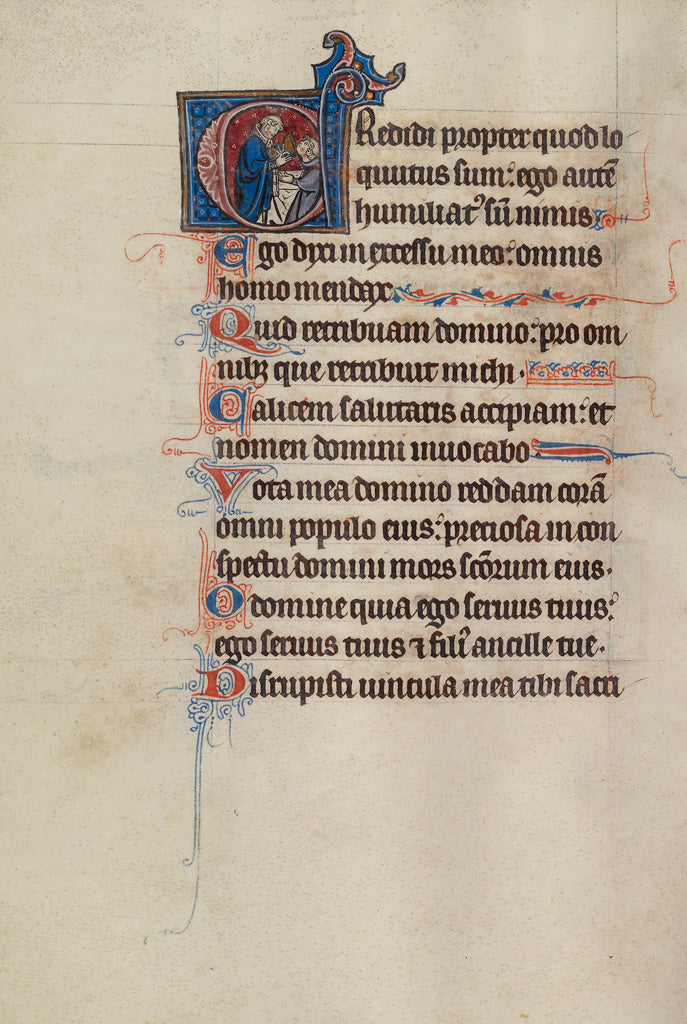 CRedidi propter quod lo
quutus sum: ego autē
humiliatꝰ sū nimis
Ego dixi in excessu meo: omnis
homo mendax.
Quid retribuam domino: pro om
nibꝫ que retribuit michi.
Calicem salutaris accipiam: et
nomen domini inuocabo
Vota mea domino reddam corā
omni populo eius: preciosa in con
spectu domini mors scōrum eius.
O domine quia ego seruus tuus:
ego seruus tuus ⁊ filiꝰ ancille tue.
Disrupisti uincula mea tibi sacri